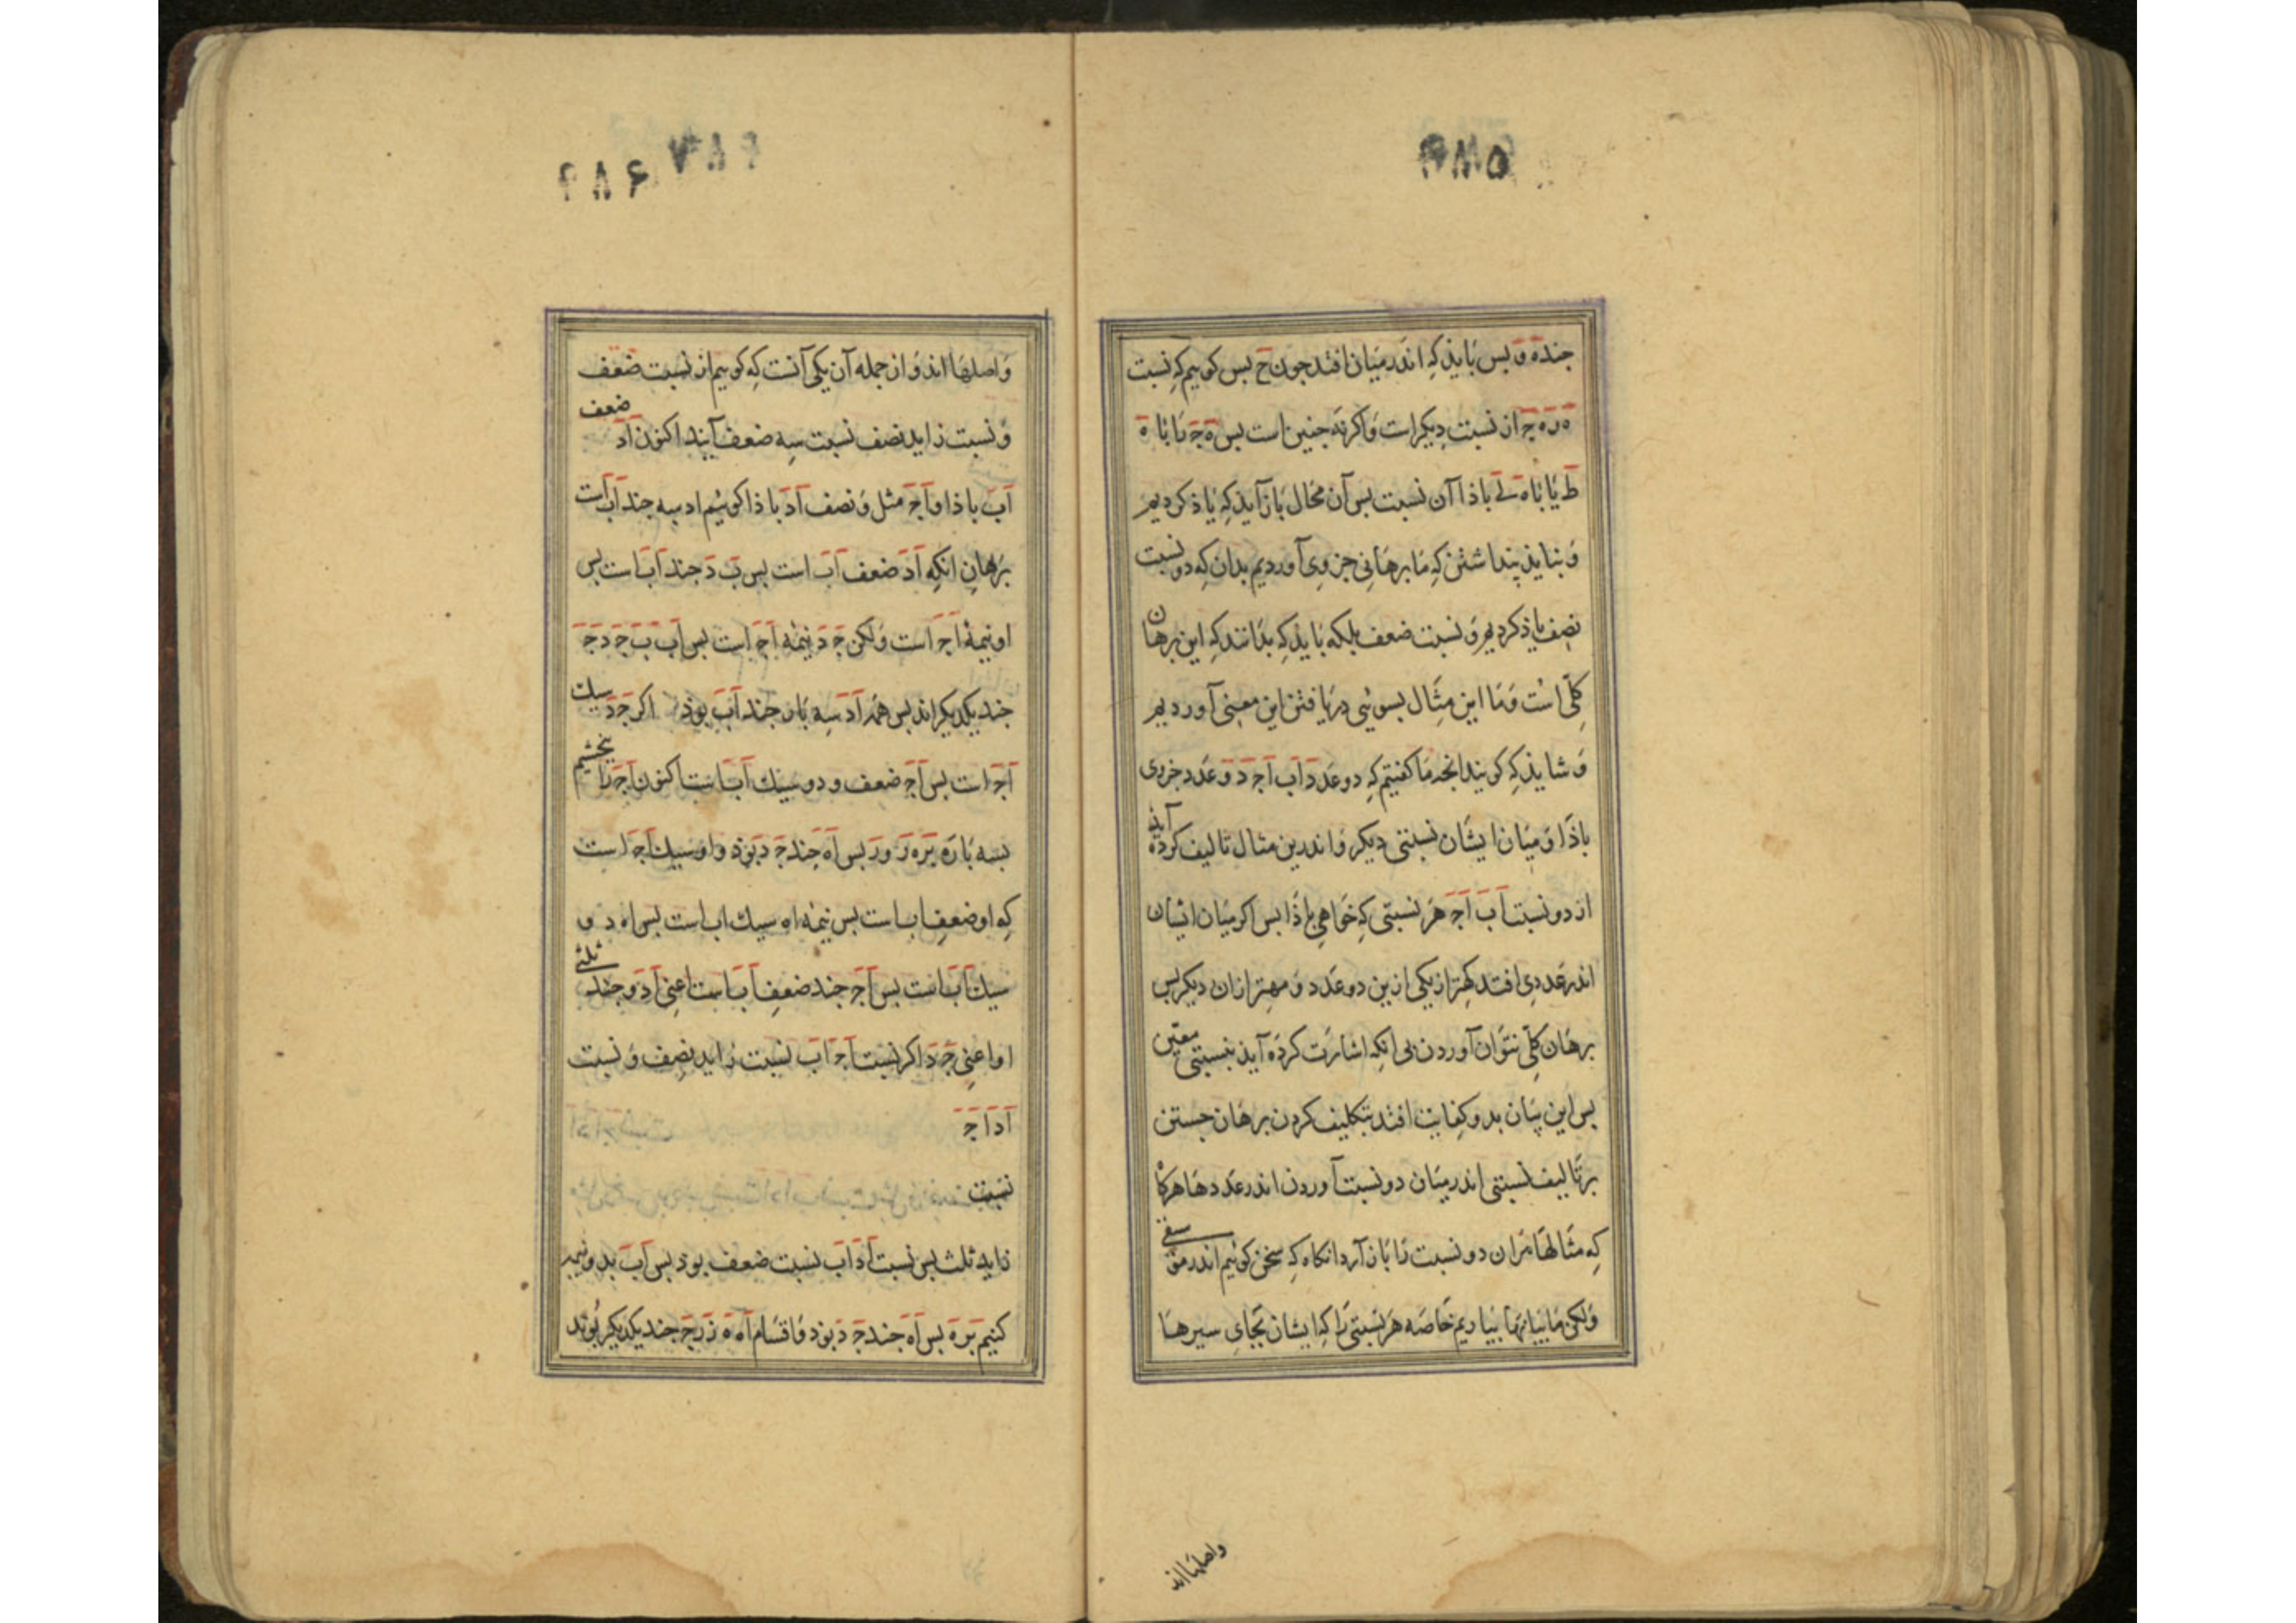 ۴۸۵
جند ه و بس بایذ که اندر میان افتد جون ح بس کوییم که نسبت
ه ر ه ج از نسبت دیکر است و اکر نه جنین است بس ه ج تا با ه
ط یا با ه ی باذا آن نسبت بس آن محال باز آید که یاذ کردیم
و نبایذ پنداشتن که ما برهانی جزوی آوردیم بدان که دو نسبت
نصف یاذ کردیم و نسبت ضعف بلکه بایذ که بدانند که این برهان
کلی است و ما این مثال بسوئی دریافتن این معنی آوردیم
و شایذ که کویند انجه ما کفتیم که دو عدد اب اج د و عدد جزوی
باذا و میان ایشان نسبتی دیکر و اندرین مثال تالیف کرده آید
از دو نسبت اب اج هر نسبتی که خواهی باذا بس اکر میان ایشان
اندر عددی افتد کهتر از یکی ازین دو عدد و مهتر از ان دیکر بس
برهان کلی نتوان آوردن بی انکه اشارت کرده آیذ بنسبتی معین
بس این بیان بدو کفایت افتد بتکلیف کردن برهان جستن
بر تالیف نسبتی اندر میان دو نسبت آوردن اندر عددها هرکاه
که مثالها مران دو نسبت را باز آرد انکاه که سخن کوئیم اندر موسقی
ولکن ما بیانها بیاریم خاصه هر نسبتی را که ایشان بجای سیرها
واصلهااند
۴۸۶ ۷۸۹
واصلهااند و از جمله آن یکی آنست که کوییم از نسبت ضعف
و نسبت زاید نصف نسبت سه ضعف آیند اکنون اد ضعف
اب باذا و اج مثل و نصف اد باذا کوئیم اد سه جند اب است
برهان انکه اد ضعف اب است بس ب د جند اب است بس
او نیمۀ اج است ولکن ج د نیمۀ اج است بس اب ب ج د ج
جند یکدیکراند بس همه اد سه بار جند اب بوذ اکر ج د سیك
اج است بس اج ضعف و دو سیك اب است اکنون اج را بخشیم
بسه باره بر ه ر ور بس اه جند ج د بوذ و او سیك اج است
که او ضعف اب است بس نیمۀ اه سیك اب است بس اه د و
سیك اب است بس اج جند ضعف اب است اعنی اد و جند ثلثی
او اعنی ج د اکر نسبت اج اب نسبت زاید نصف و نسبت
اد اج
نسبت
زاید ثلث بس نسبت اد اب نسبت ضعف بوذ بس اب بدو نیم
کنیم بر ه بس اه جند ج د بوذ و اقسام اه ه ز ر ج جند یکدیکر بوند